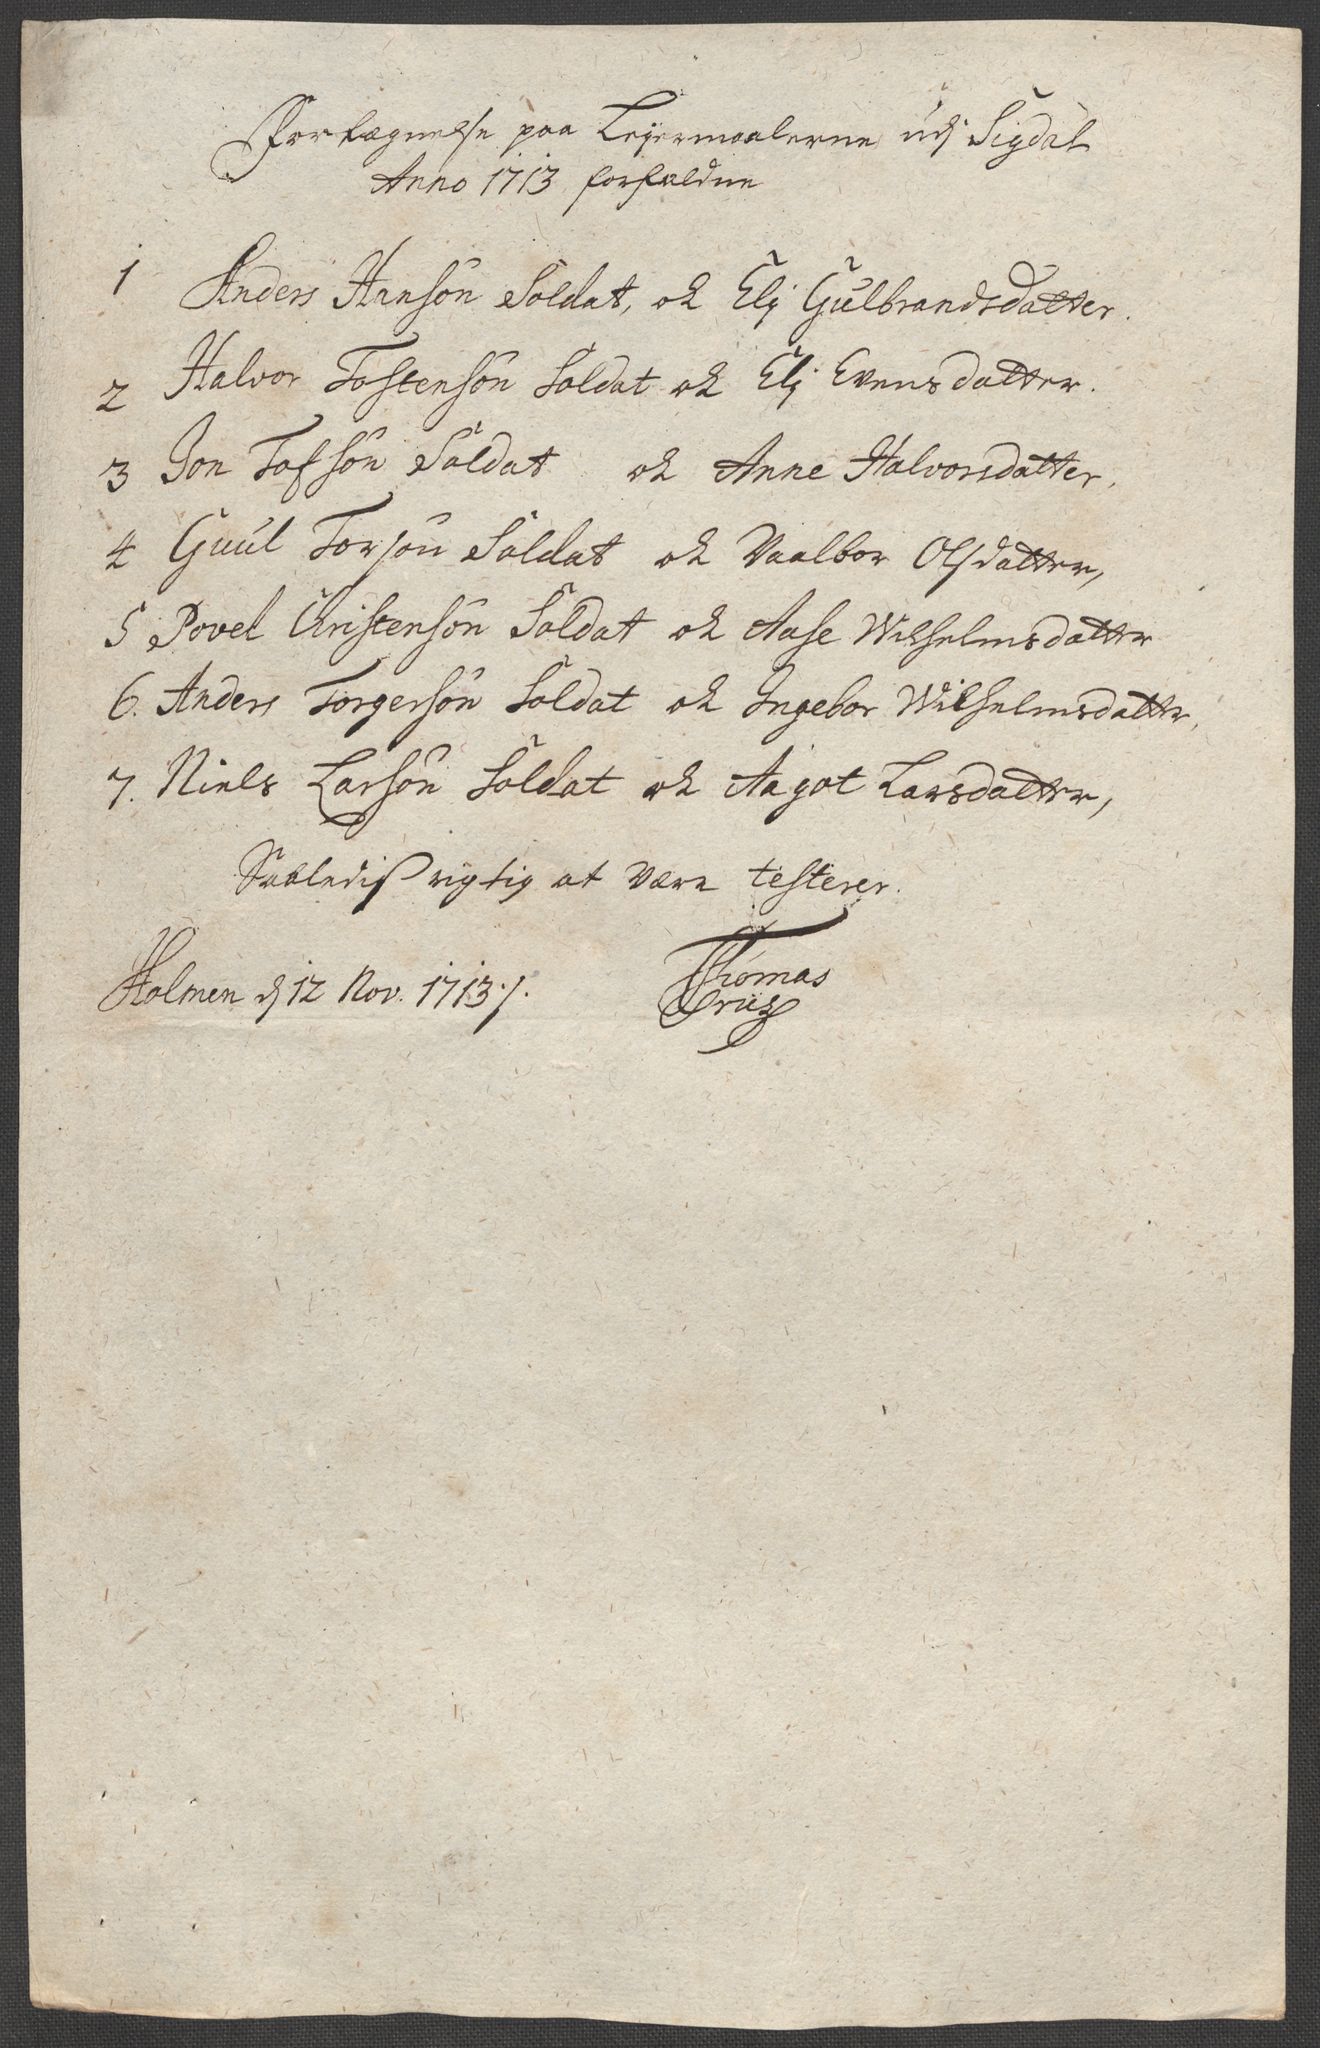 Fortegnelse paa Leyermaalerne udj Sigdal
Anno 1713 forfaldne
1 Anders Hansøn Soldat, ok Elj Gulbrandsdatter.
2 Halvor Tostensøn Soldat ok Elj Evensdatter.
3 Jon Tofsøn Soldat ok Anne Halvorsdatter.
4 Guul Torsøn Soldat ok Vaalbor Olsdatter,
5 Povel Christensøn Soldat ok Aase Wilhelmsdatter
6. Anders Torgersøn Soldat ok Ingebor Wilhelmsdatter,
7. Niels Larsøn Soldat ok Aagot Larsdatter,
Saaledis rigtig at være testerer.
Holmen d 12 Nov. 1713
Thomas